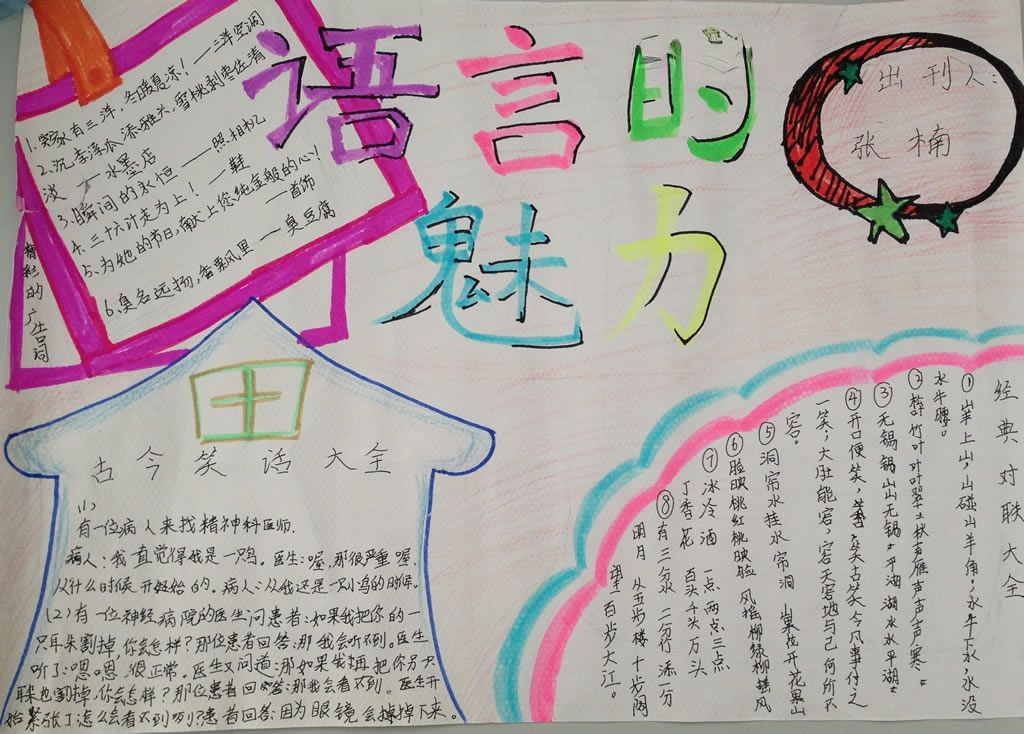 语言的
魅力
出刊人：
张楠
精彩的广告词
1.家有三洋，冬暖夏凉！——三洋空调
2.沉李浮瓜添雅兴，雪桃剥枣佐清
淡——水墨店
3.瞬间的永恒——照相机
4.三十六计走为上！——鞋
5.为她的节日，献上您纯金般的心！
——首饰
6.臭名远扬，香飘风里——臭豆腐
古今笑话大全
(1)
有一位病人来找精神科医师.
病人：我一直觉得我是一只鸟。医生：喔，那很严重喔
从什么时候开始的。病人：从我还是一只小鸟的时候.
(2)有一位神经病院的医生问患者：如果我把你的一
只耳朵割掉，你会怎样？那位患者回答：那我会听不到。医生
听了：嗯嗯，很正常。医生又问道：那如果我再把你另只
耳朵也割掉，你会怎样？那位患者回答：那我会看不到。医生开
始紧张了怎么会看不到咧？患者回答：因为眼镜会掉掉下来。
经典对联大全
①山羊上山，山碰山羊角；水牛下水，水没
水牛腰。
②竹叶叶叶翠 秋声雁声声声寒
③无锡锡山山无锡 平湖湖水水平湖
④开口便笑，笑古笑今凡事付之
一笑，大肚能容，容天容地与己何所不
容。
⑤洞帘水挂水帘洞 山果花开花果山
⑥脸映桃红桃映脸 风摇柳绿柳摇风
⑦冰冷酒 一点两点三点
丁香花 百头千头万头
⑧有三分水 二分竹 添一分
明月 从五步楼十步阁
望百步大江。